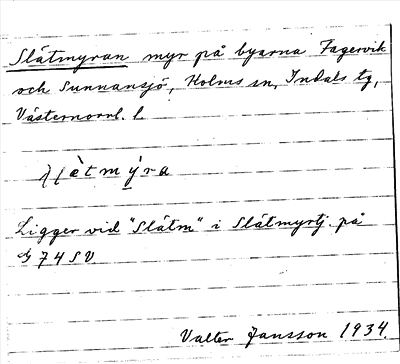 Slåtmyran myr på byarna Fagervik
och Sunnansjö, Holms sn, Indals tg,
Västernorrl. l.
Ligger vid "Slåtm" i Slåtmyrtj. på
74 SV
Valter Jansson 1934.